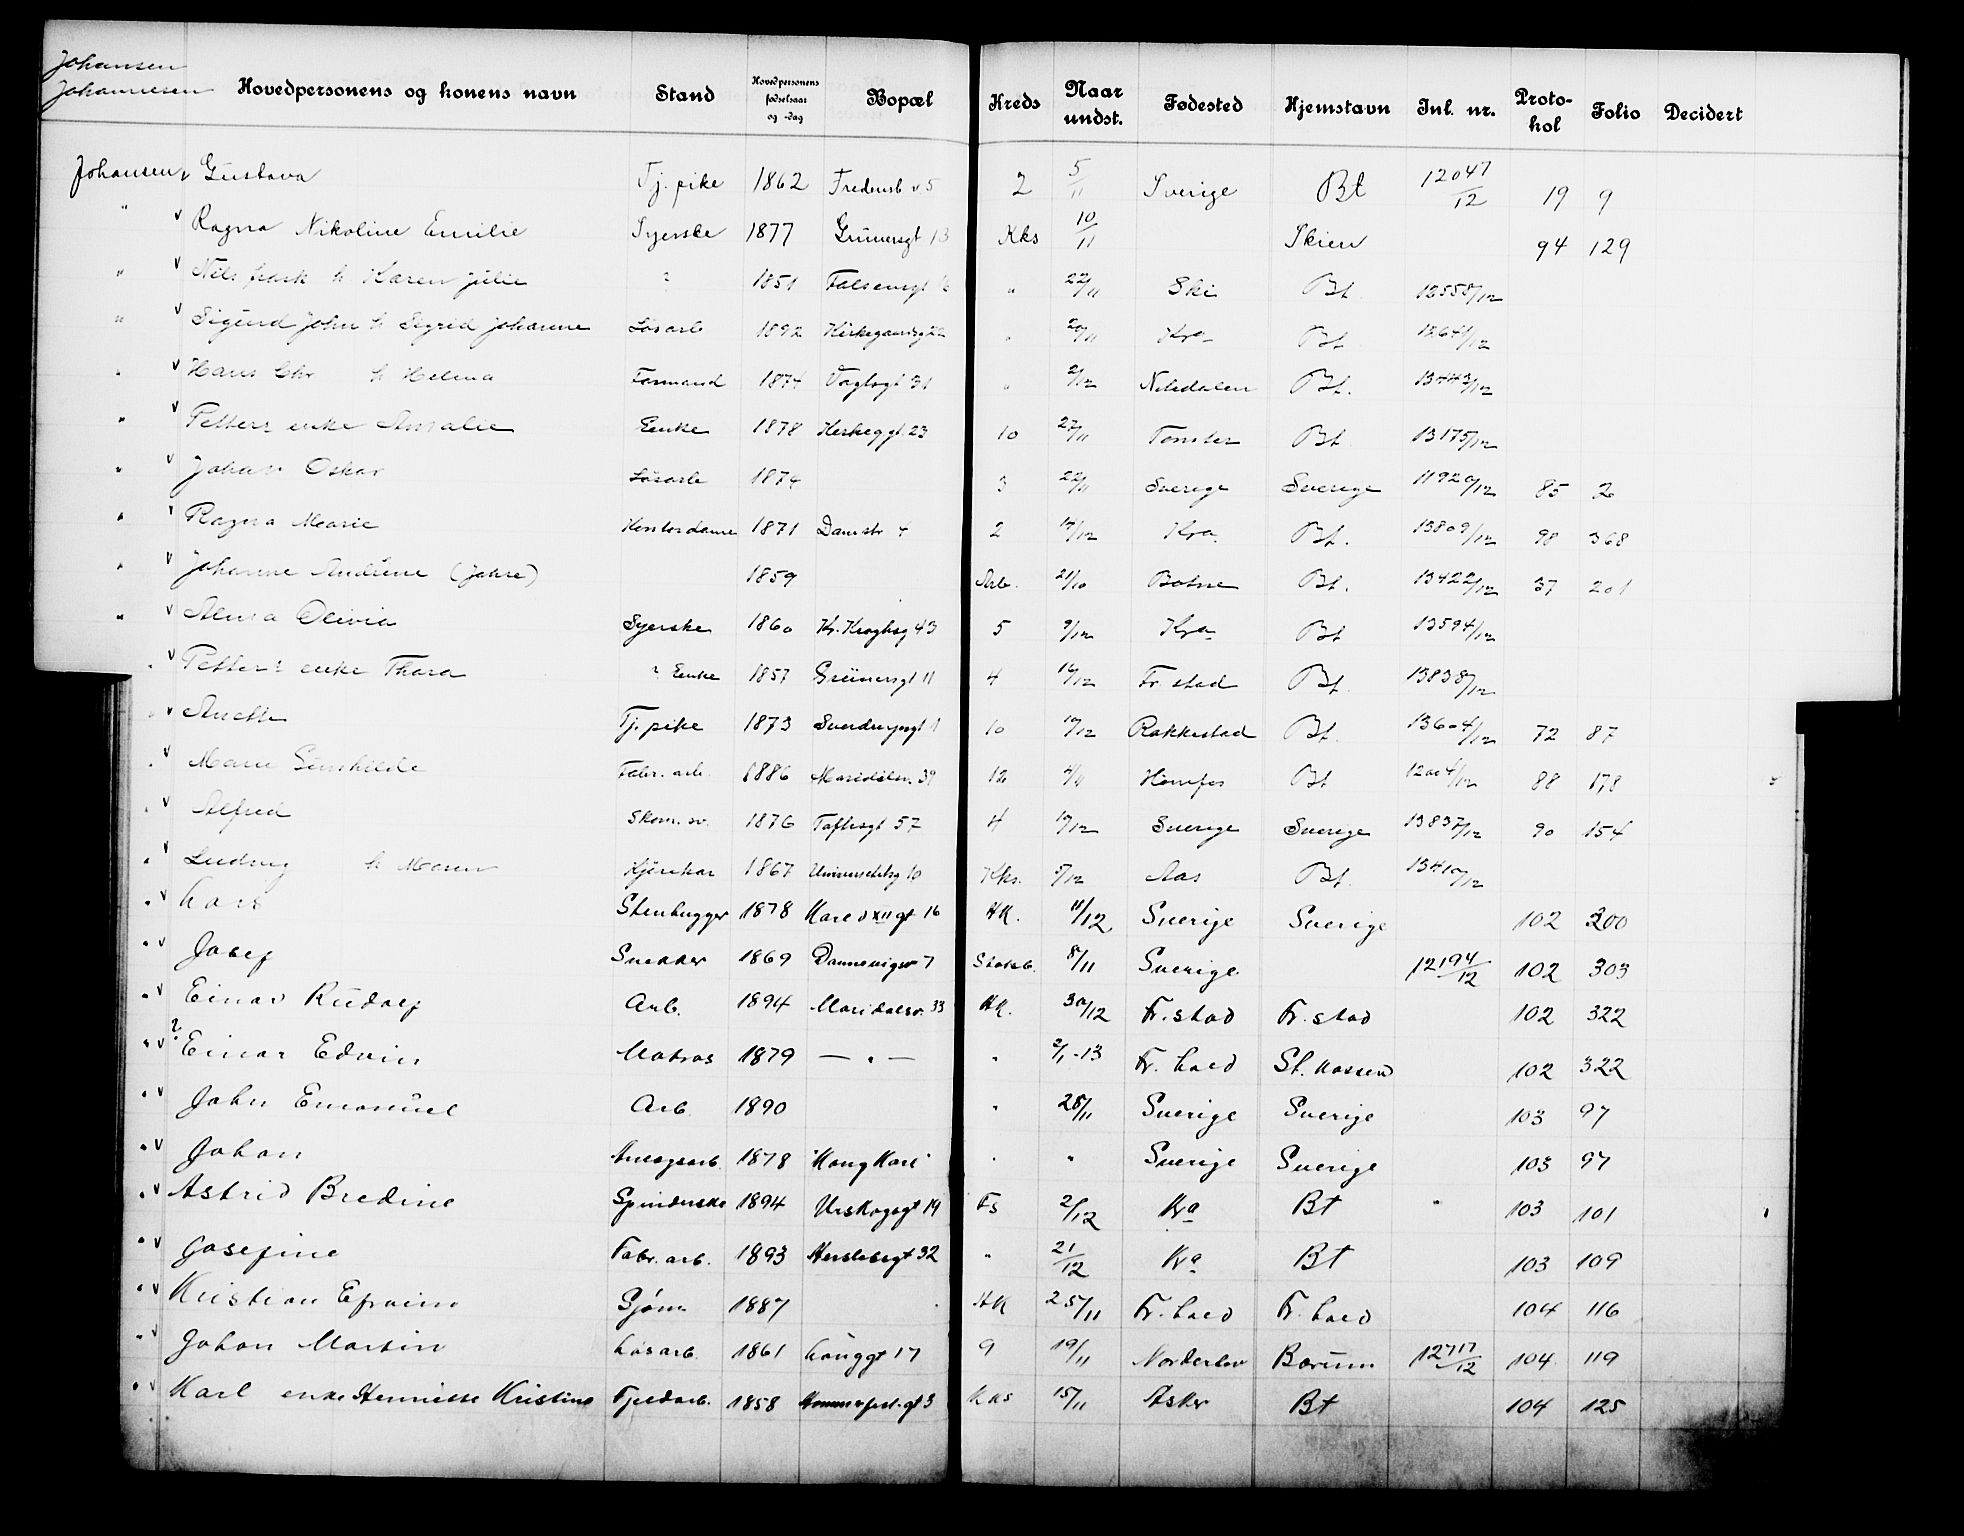 Johansen
Johannesen
Hovedpersonens og konens navn Stand Hovedpersonens fødselsaar og -dag Bopæl Kreds Naar undst. Fødested Hjemstavn Inl. nr. Protokol Folio Decidert
Johansen v Gustava Tj. pike 1862 Fredensb v. 5 2 5/11 Sverige Bt 12047/12 19 9
" v Ragna Nikoline Emilie Syerske 1877 Grünersgt 13 Kks 10/11 Skien 94 129
" v Nils h Karen Julie ? 1851 Falsensgt " 22/11 Ski Bt 12558/12
" v Sigurd John h Sigrid Johanne Løsarb 1892 " 20/11 Kra Bt
" v Hans Chr h Helma Formand 1874 Vogtsgt 31 " 2/12 Nitedalen Bt. 13443/12
" v Petters enke Amalie Enke 1878 23 10 27/11 Bt 13175/12
" v Johan Oskar Løsarb 1874 3 22/11 Sverige Sverige 11920/12 85 2
" v Ragna Marie Kontordame 1871 Damstr 4 2 /12 Kra. Bt. 13809/12 98 368
" v Johanne Andrine (Jahre) 1859 Arb. 21/10 Botne Bt. 13422/12 37 201
" v Alma Olivia Syerske 1860 Kr. Kroghsg 43 5 9/12 Kra Bt 13594/12
" v Petters enke Thora ? Enke 1857 Grünersgt 11 4 /12 Fr stad Bt. 13838/12
" v Anette Tj. pike 1873 Sverdrupsgt 1 10 10/12 Rakkestad Bt. 13604/12 72 87
" v Marie Gunhilde Fabr. arb. 1886 Maridalsv. 39 12 4/11 Hønefos Bt 12004/12 88 178
" v Alfred Skom. sv. 1876 Toftesgt 57 4 /12 Sverige Sverige 13837/12 90 154
" v Ludvig h Maren Kjørekar 1867 Universitetsg 10 Kks. 5/12 Aas Bt. 13410/12
" v Lars Stenhugger 1878 Karl d XII gt 16 HK. 11/12 Sverige Sverige 102 300
" v Josef Snekker 1869 Dannevigsv 7 Stokb. 8/11 Sverige 12194/12 102 303
" v Einar Rudolf Arb. 1894 Maridalsv. 33 HK. 30/12 Fr. stad Fr. stad 102 322
" v ? Einar Edvin Matros 1879 — " — " 2/1-13 Fr. hald 102 322
" v John Emanuel Arb. 1890 " 28/11 Sverige Sverige 103 97
" v Johan Anlegsarb. 1878 "Kong Karl" " " Sverige Sverige 103 97
" v Astrid Bredine Spinderske 1894 Urskogsgt 19 Fs 2/12 Kra Bt " 103 101
" v Josefine Fabr. arb. 1893 Herslebsgt 32 " 21/12 Kra Bt 103 109
" v Kristian Efraim Sjøm 1887 HK 25/11 Fr. hald Fr. hald 104 116
" v Johan Martin Løsarb. 1861 Langgt 17 9 19/11 Norderhov Bærum 12717/12 104 119
" v Karl enke Henriette Kristine Fjeldarb. 1858 Hammerfest. gt 3 Kks 15/11 Asker Bt 104 125